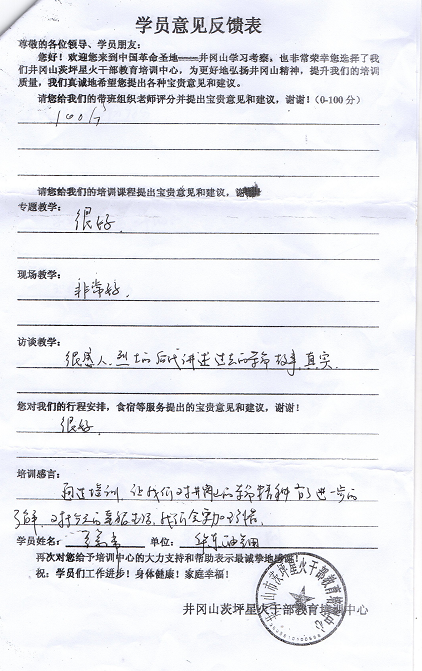 学员意见反馈表
尊敬的各位领导、学员朋友：
您好！欢迎您来到中国革命圣地——井冈山学习考察，也非常荣幸您选择了我
们井冈山茨坪星火干部教育培训中心，为更好地弘扬井冈山精神，提升我们的培训
质量，我们真诚地希望您提出各种宝贵意见和建议。
请您给我们的带班组织老师评分并提出宝贵意见和建议，谢谢！（0-100 分）
100分
请您给我们的培训课程提出宝贵意见和建议，谢
专题教学：
很好.
现场教学：
非常好.
访谈教学：
很感人.烈士的后代讲述过去的革命故事.真实.
您对我们的行程安排，食宿等服务提出的宝贵意见和建议，谢谢！
很好.
培训感言：
通过培训.让我们对井冈山的革命精神有了进一步的
了解.对今天的幸福生活.我们会更加珍惜.
学员姓名： 单位：
再次对您给予培训中心的大力支持和帮助表示最诚挚地感谢！
祝：学员们工作进步！身体健康！家庭幸福！
井冈山茨坪星火干部教育培训中心
井冈山市茨坪星火干部教育培训中心